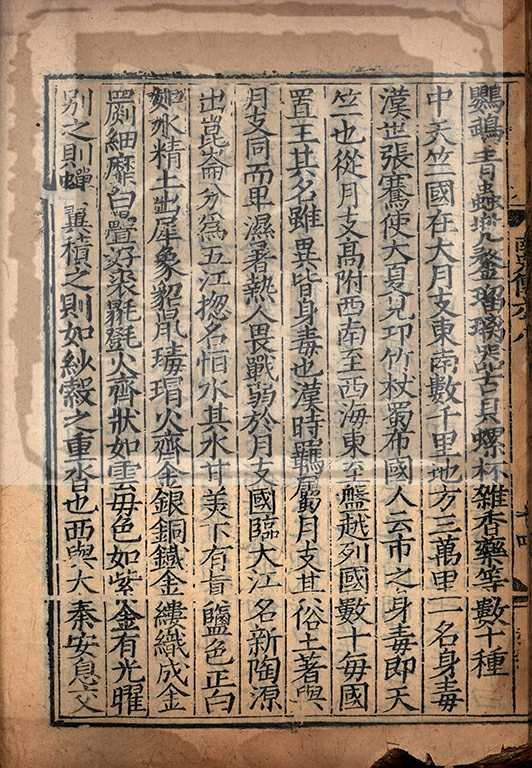 鸚鵡青蟲兜鍪瑠璃器古貝螺杯雜香藥等數十種
中天竺國在大月支東南數千里地方三萬里一名身毒
漢世張騫使大夏見邛竹杖蜀布國人云市之身毒即天
竺也從月支高附西南至西海東至盤越列國數十每國
置王其名雖異皆身毒也漢時羈屬月支其俗土著與
月支同而卑濕暑熱人畏戰弱於月支國臨大江名新陶源
出崑崙分為五江揔名恒水其水甘美下有真鹽色正白
如水精土出犀象貂鼠瑇瑁火齊金銀銅鐵金縷織成金
罽細靡白疊好裘毾㲪火齊狀如雲母色如紫金有光曜
別之則蟬翼積之則如紗縠之重沓也西與大秦安息交